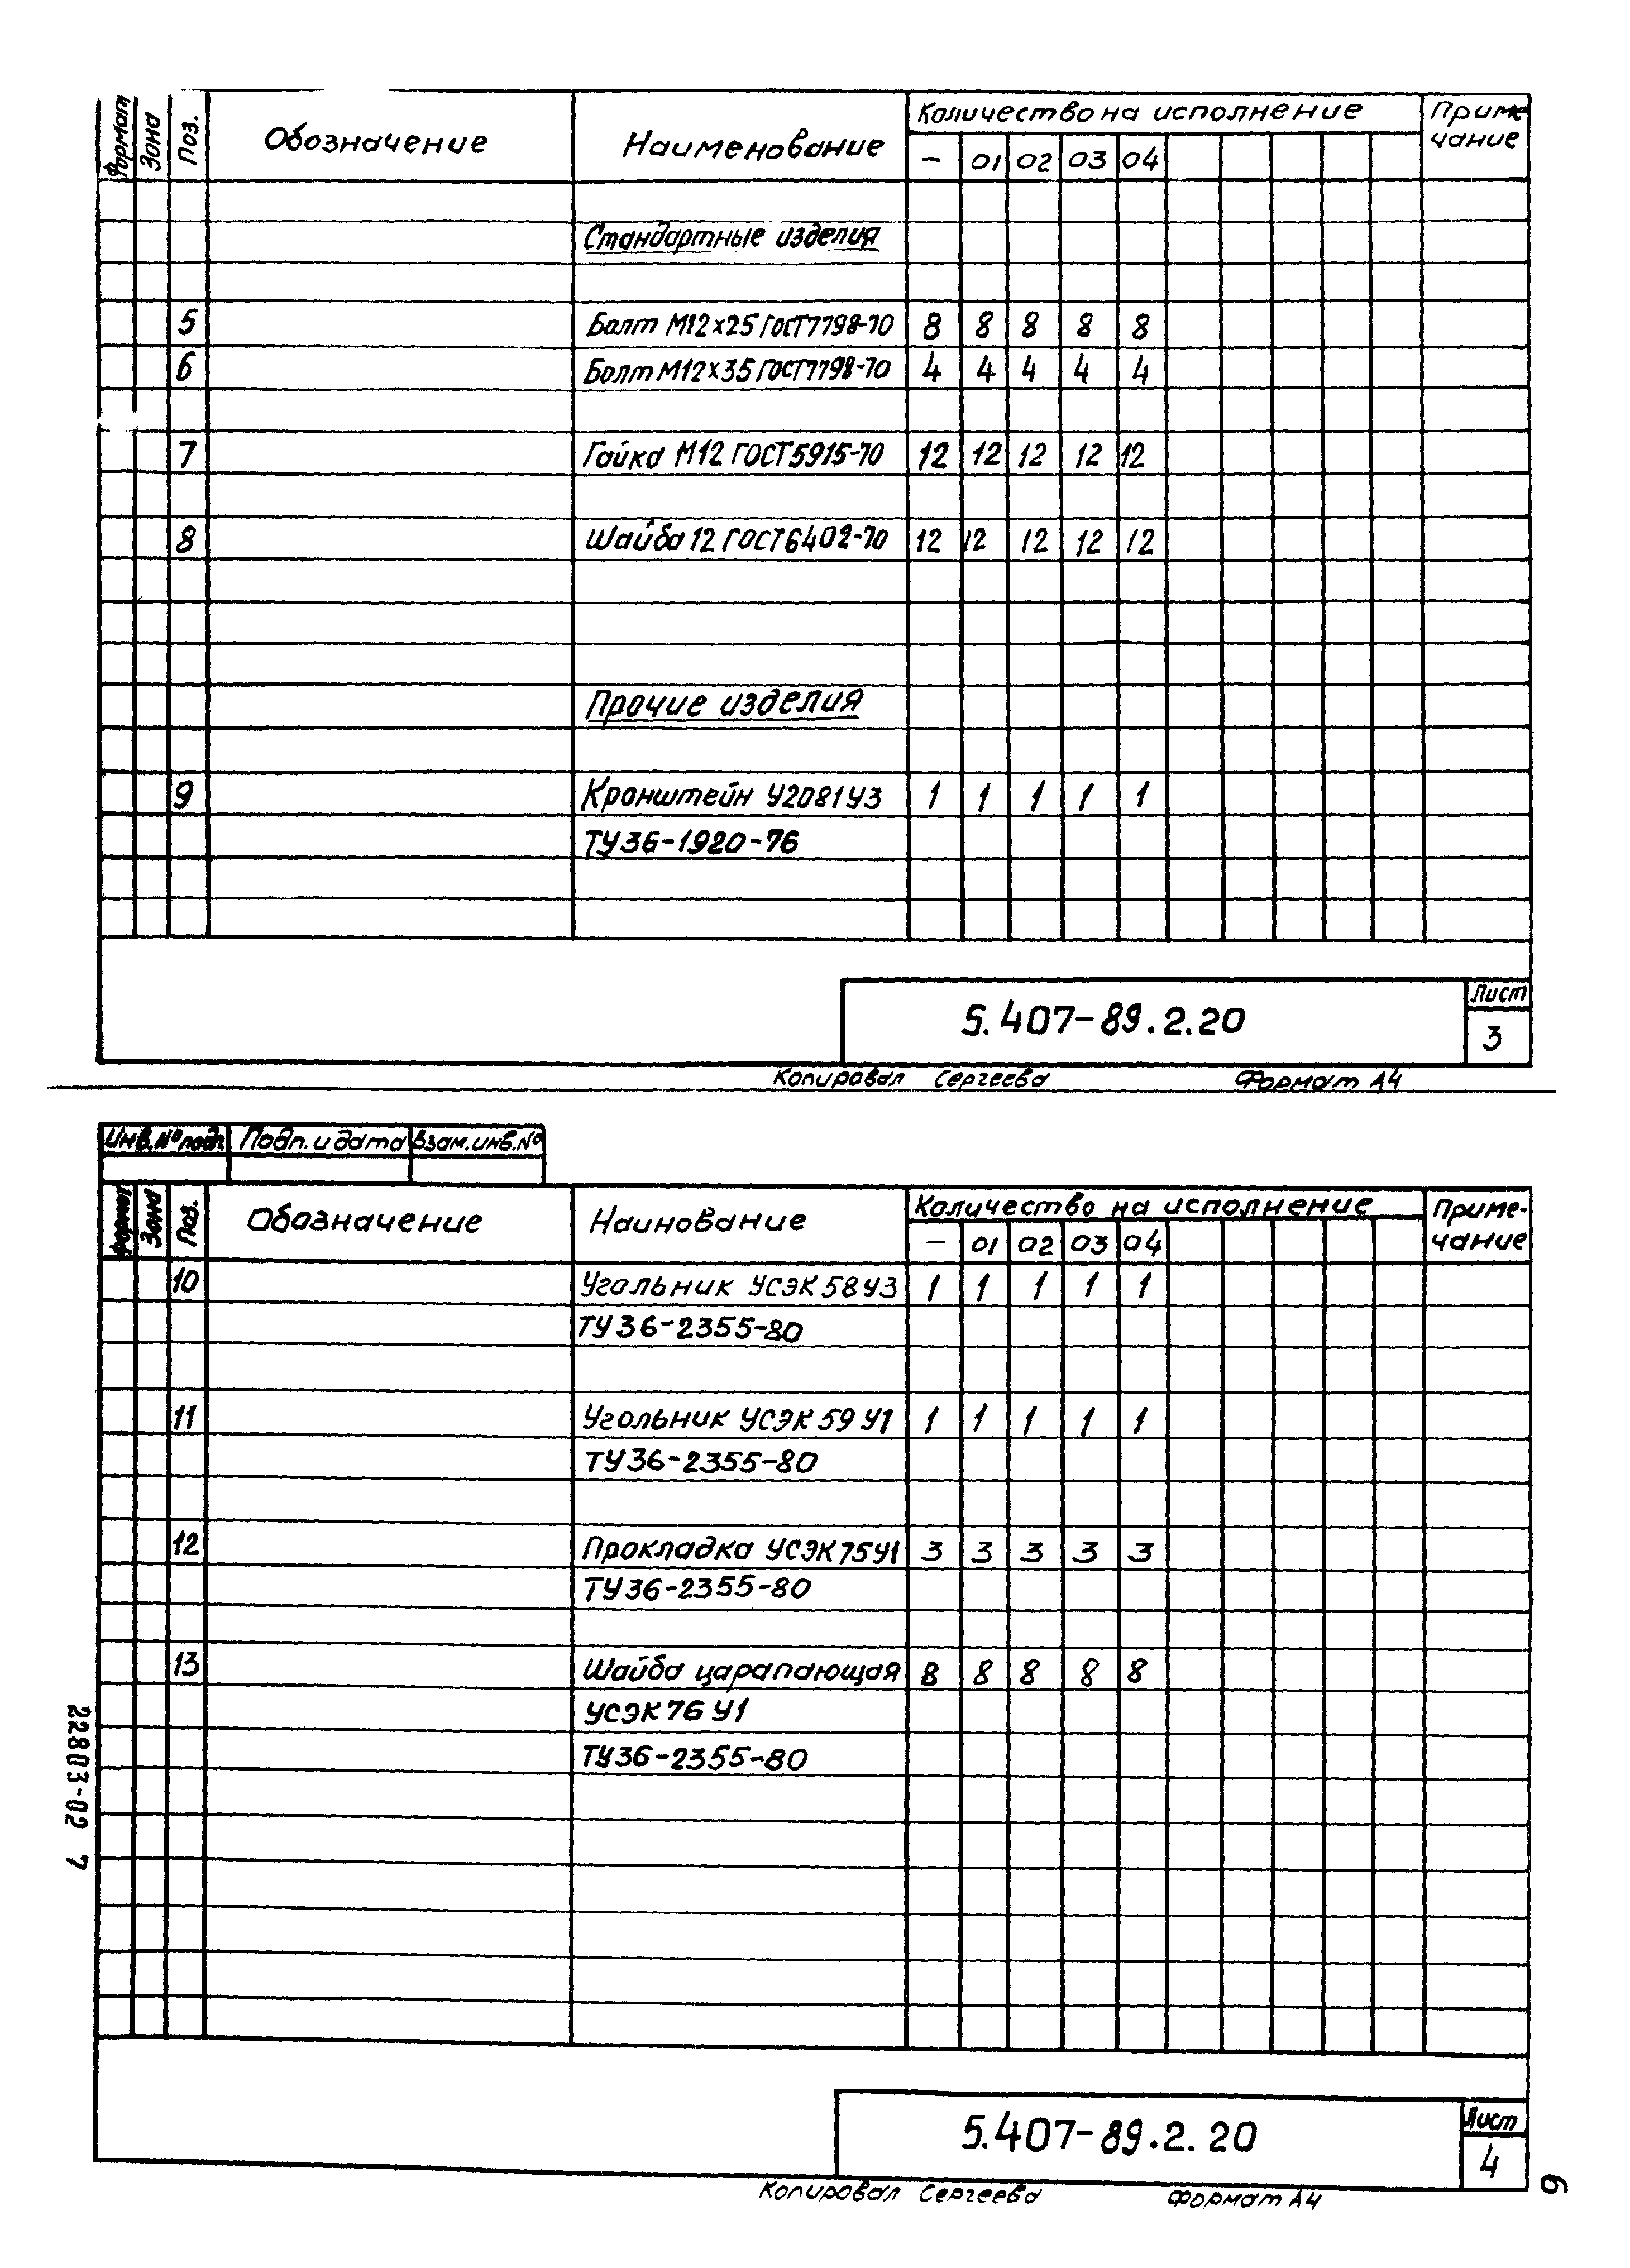 Формат Зона Поз. Обозначение Наименование Количество на исполнение Приме
чание
— 01 02 03 04
Стандартные изделия
5 Болт М12х25 ГОСТ7798-70 8 8 8 8 8
6 Болт М12х35 ГОСТ7798-70 4 4 4 4 4
7 Гайка М12 ГОСТ5915-70 12 12 12 12 12
8 Шайба 12 ГОСТ6402-70 12 12 12 12 12
Прочие изделия
9 Кронштейн У2081У3 1 1 1 1 1
ТУ36-1920-76
5.407-89.2.20
Лист
3
Копировал Сергеева Формат А4
Инв.№ подл. Подп. и дата Взам.инв.№
Формат Зона Поз. Обозначение Наинование Количество на исполнение Приме-
чание
— 01 02 03 04
10 Угольник УСЭК 58У3 1 1 1 1 1
ТУ36-2355-80
11 Угольник УСЭК 59 У1 1 1 1 1 1
ТУ36-2355-80
12 Прокладка УСЭК75У1 3 3 3 3 3
ТУ36-2355-80
13 Шайба царапающая 8 8 8 8 8
УСЭК76 У1
ТУ36-2355-80
22803-02 7
5.407-89.2.20
Лист
4
Копировал Сергеева Формат А4
6